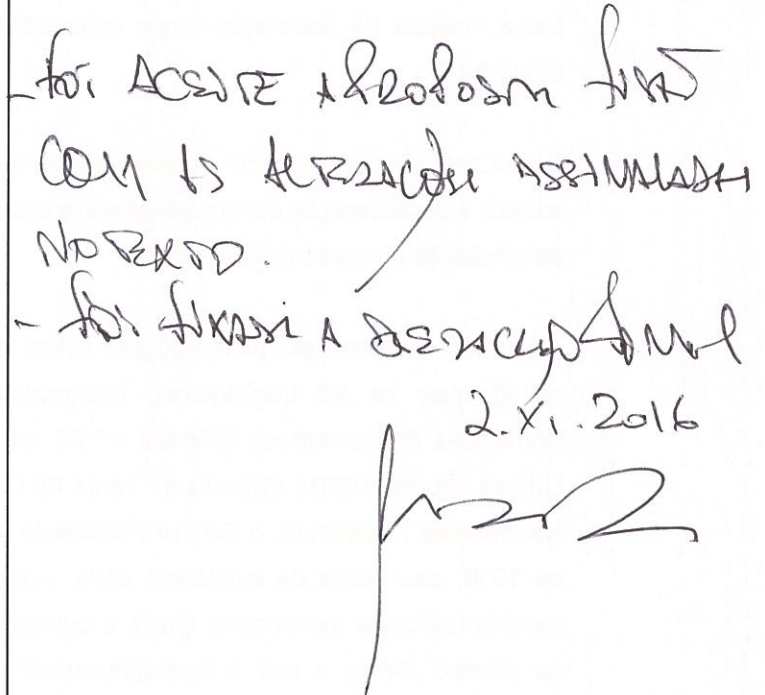 - FOI ACEITE A PROPOSTA FINAL
COM AS ALTERAÇÕES ASSINALADAS
NO TEXTO.
- FOI FIXADA A REDACÇÃO FINAL
2.XI.2016